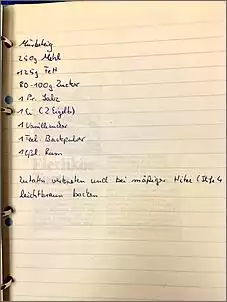 Mürbteig
250g Mehl
125g Fett
80-100g Zucker
1 Pr. Salz
1 Ei (2 Eigelb)
1 Vanillinzucker
1 Teel. Backpulver
1 Eßl. Rum
Zutaten verkneten und bei mäßiger Hitze (Stufe 4
leichtbraun backen